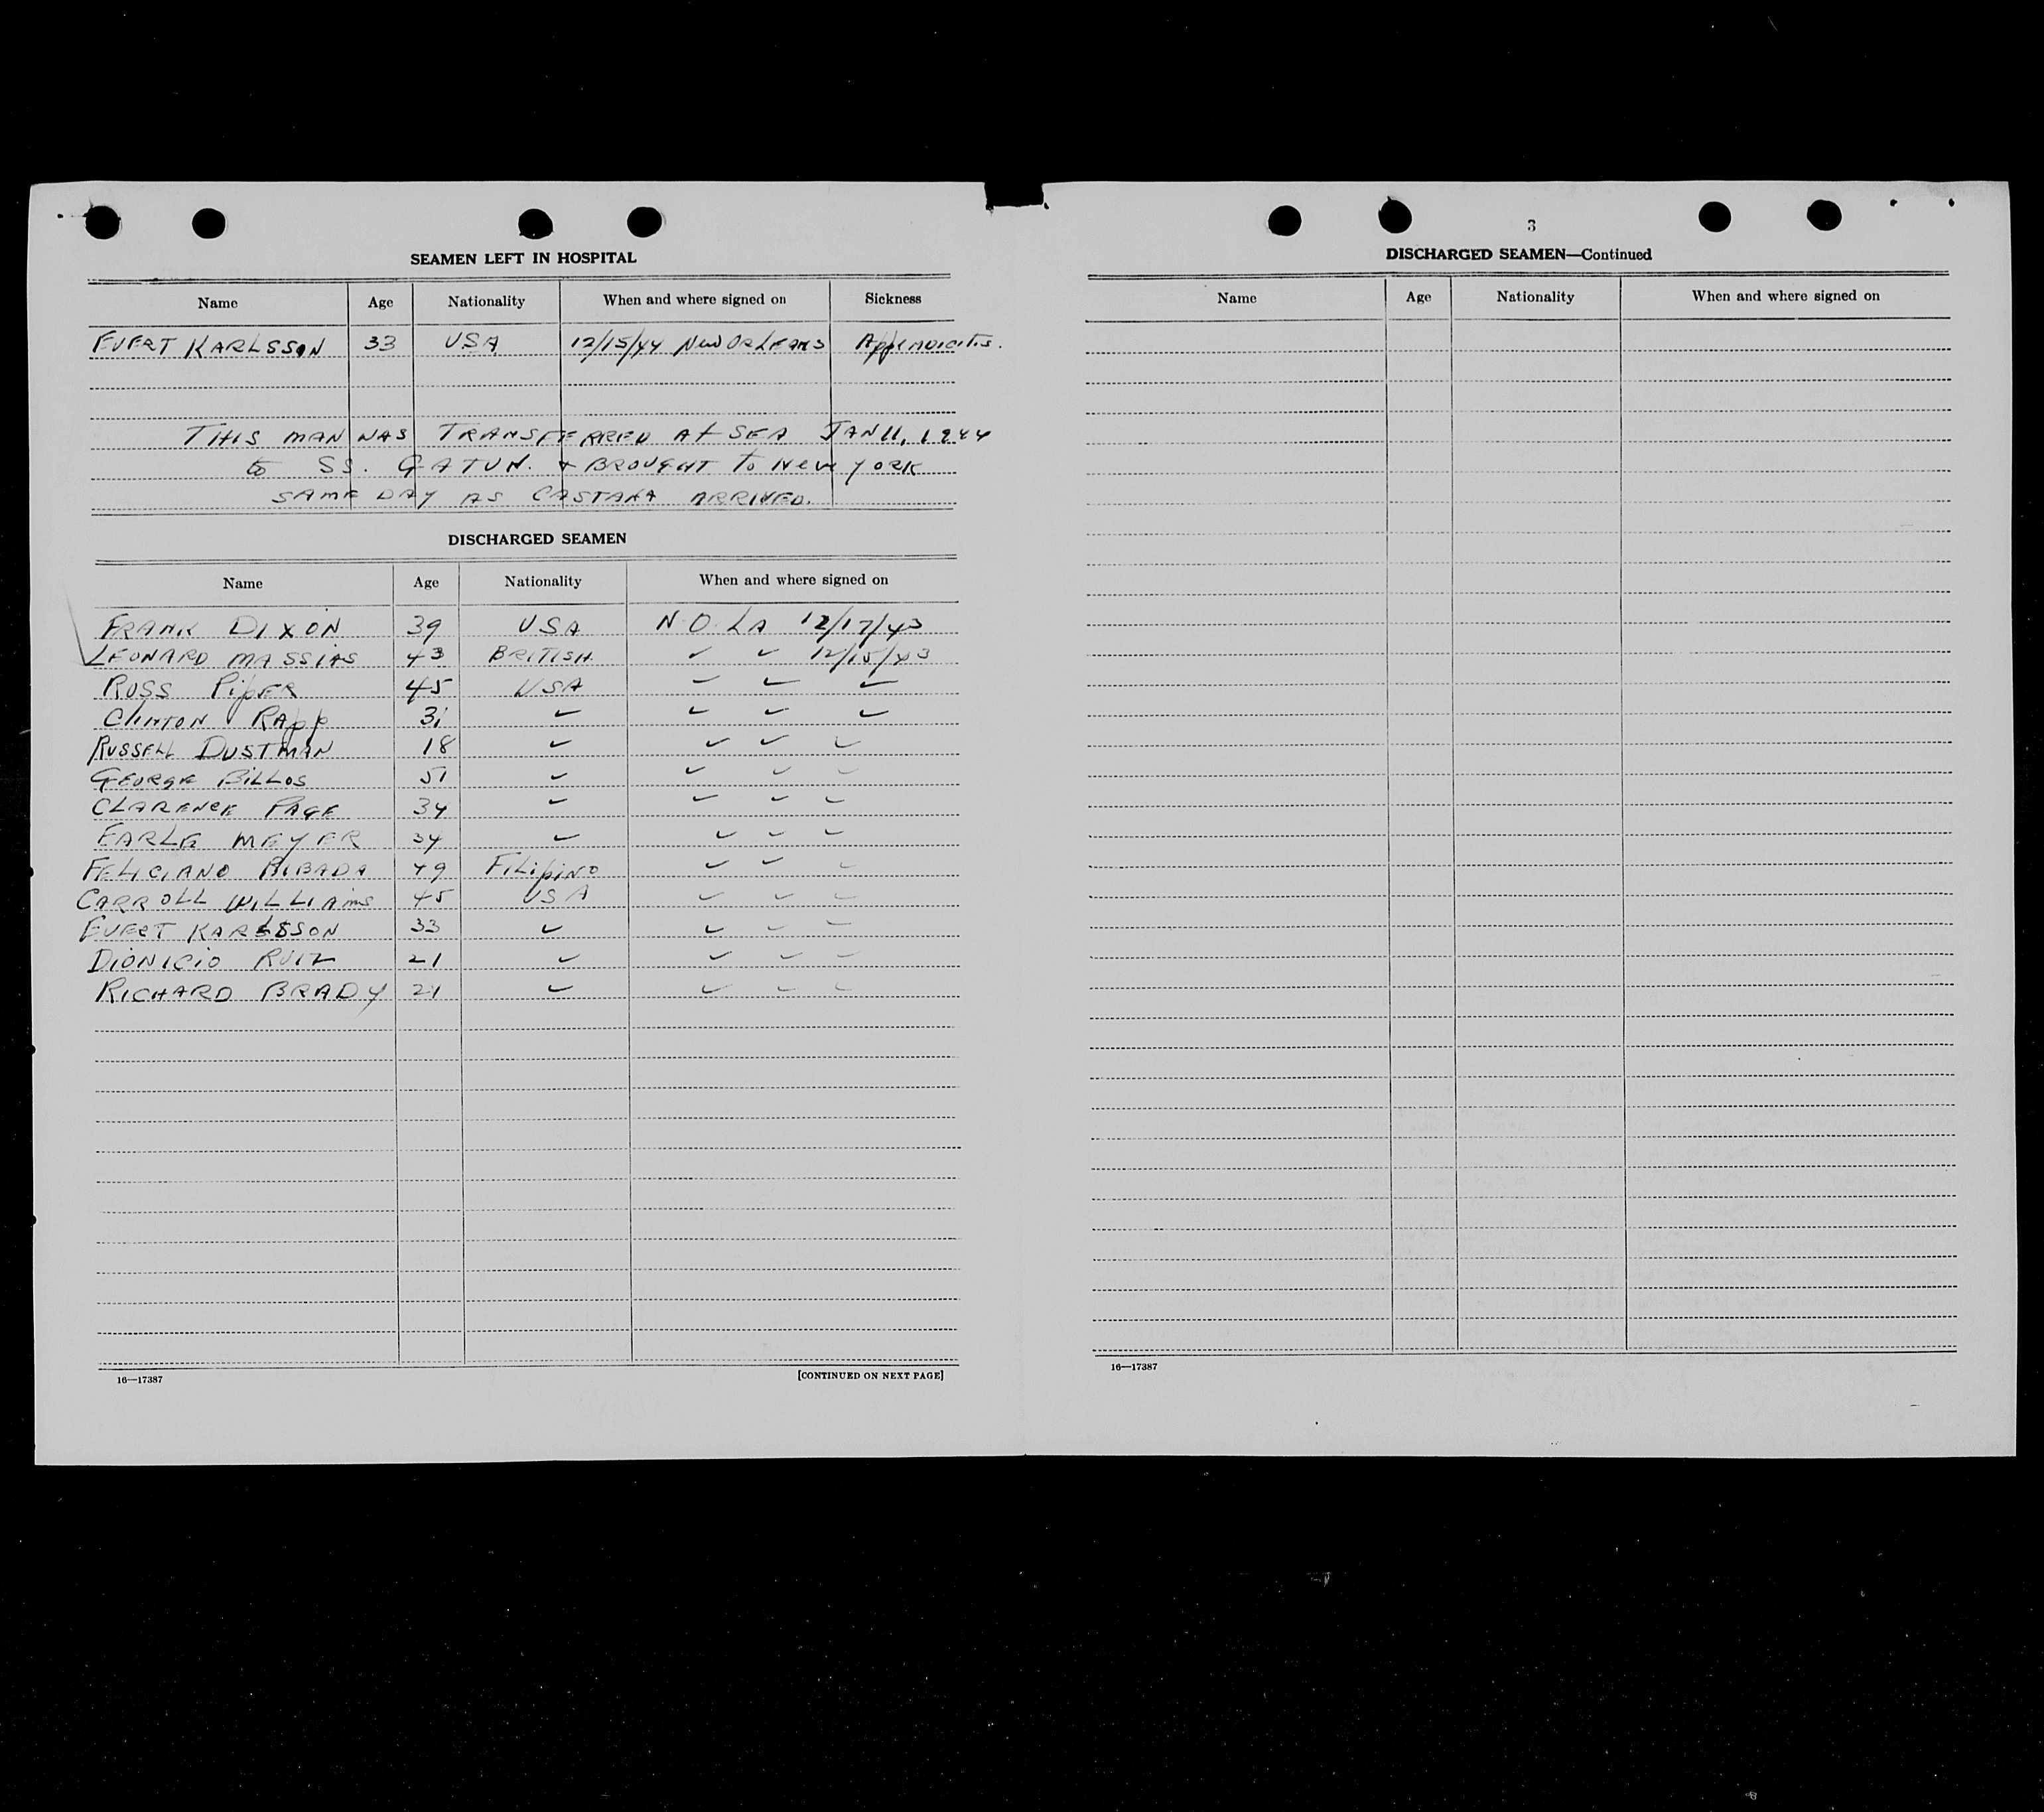 SEAMEN LEFT IN HOSPITAL
Name Age Nationality When and where signed on Sickness
EVERT KARLSSON 33 USA 12/15/44 New ORLEANS Appendicitis.
THIS MAN WAS TRANSFERRED At SEA JAN 11, 1944
to SS. GATUN. & BROUGHT to New YORK
SAME DAY AS CASTANA ARRIVED.
DISCHARGED SEAMEN
Name Age Nationality When and where signed on
FRANK DIXON 39 USA N.O. LA 12/17/43
LEONARD MASSIAS 43 BRITISH. ✓ ✓ 12/15/43
ROSS PipER 45 USA ✓ ✓ ✓
CLINTON RApp 31 ✓ ✓ ✓ ✓
RUSSELL DUSTMAN 18 ✓ ✓ ✓ ✓
GEORGE BILLOS 51 ✓ ✓ ✓ ✓
CLARENCE PAGE 34 ✓ ✓ ✓ ✓
EARLE MEYER 34 ✓ ✓ ✓ ✓
FELICIANO 49 FILipINO ✓ ✓ ✓
CARROLL WILLIAMS 45 USA ✓ ✓ ✓
EVERT KARLSSON 33 ✓ ✓ ✓ ✓
DIONICIO RUIZ 21 ✓ ✓ ✓ ✓
RICHARD BRADY 21 ✓ ✓ ✓ ✓
16—17387 [CONTINUED ON NEXT PAGE]
3
DISCHARGED SEAMEN—Continued
Name Age Nationality When and where signed on
16—17387